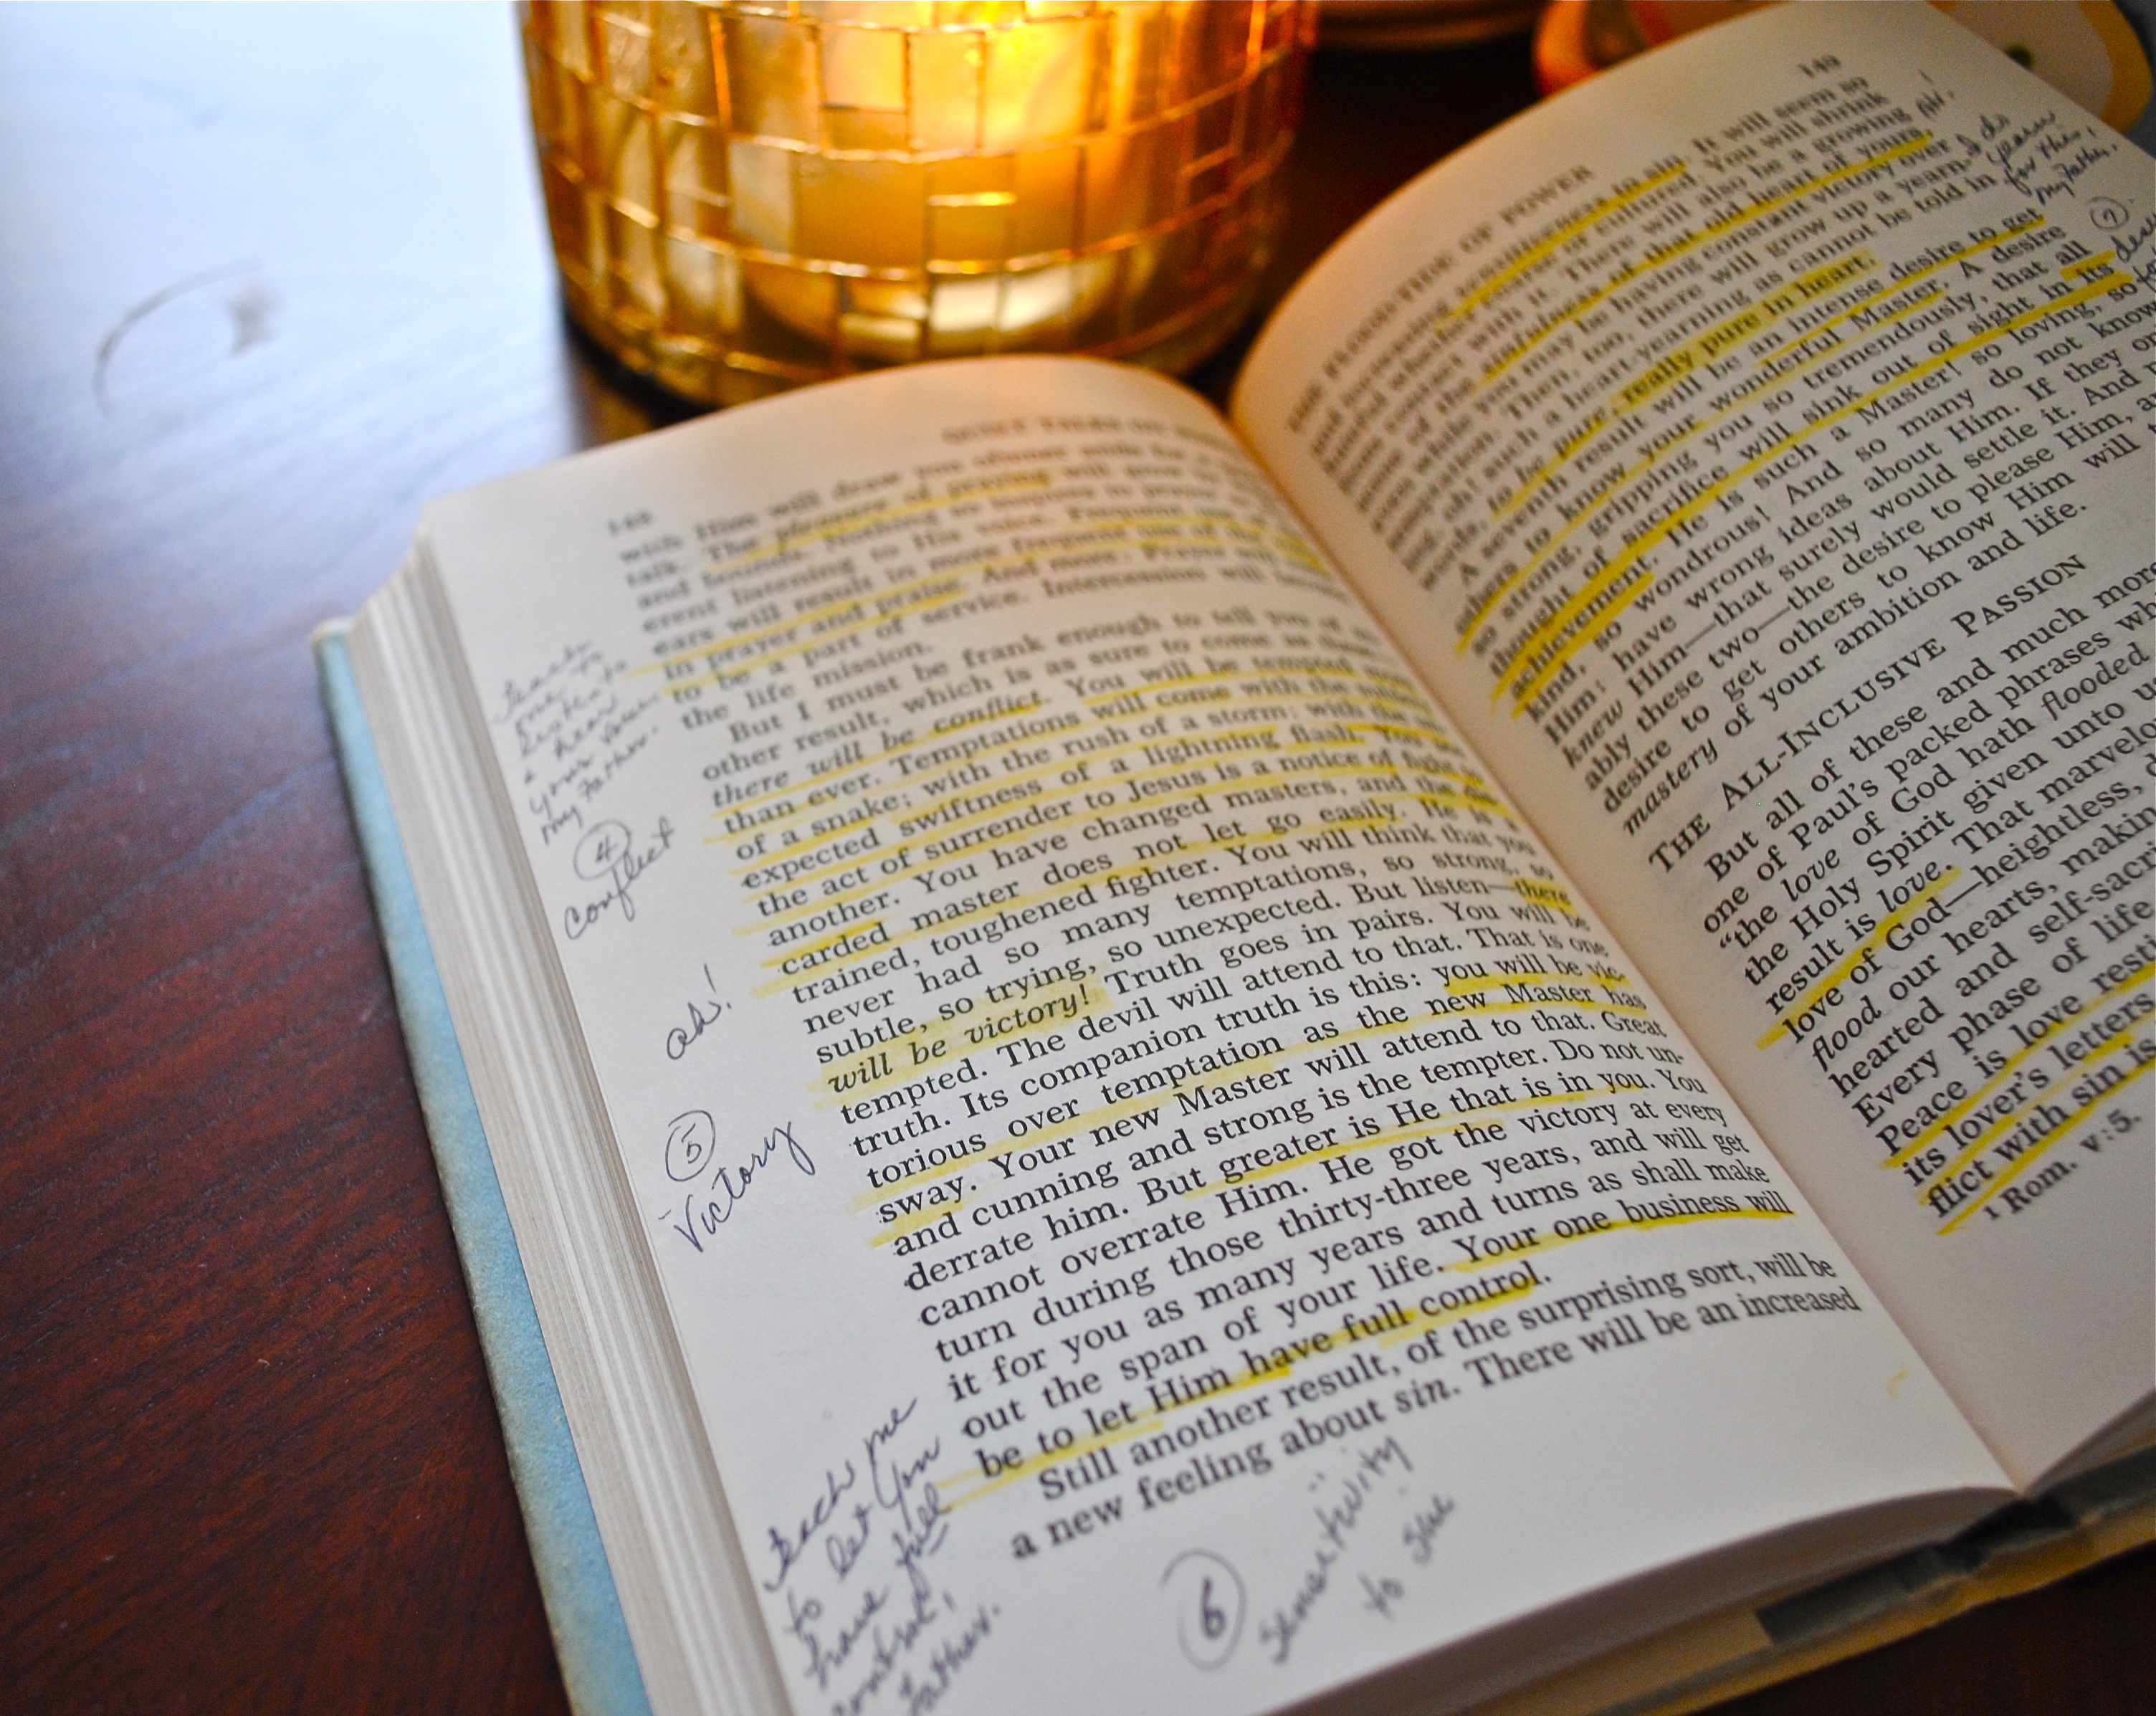 148
QUIET TALKS ON
with Him will draw you oftener aside for a
talk. The pleasure of praying will
and bounds. Nothing so
erent listening to His voice.
ears will result in more frequent use of the
in prayer and praise. And more: Prayer will
to be a part of service. Intercession will
the life mission.
But I must be frank enough to tell you of
other result, which is as sure to come as these
there will be conflict. You will be tempted
than ever. Temptations will come with the
of a snake; with the rush of a storm; with the
expected swiftness of a lightning flash. You
the act of surrender to Jesus is a notice of fight
another. You have changed masters, and the
carded master does not let go easily. He is a
trained, toughened fighter. You will think that you
never had so many temptations, so strong, so
subtle, so trying, so unexpected. But listen—there
will be victory! Truth goes in pairs. You will be
tempted. The devil will attend to that. That is one
truth. Its companion truth is this: you will be vic-
torious over temptation as the new Master has
sway. Your new Master will attend to that. Great
and cunning and strong is the tempter. Do not un-
derrate him. But greater is He that is in you. You
cannot overrate Him. He got the victory at every
turn during those thirty-three years, and will get
it for you as many years and turns as shall make
out the span of your life. Your one business will
be to let Him have full control.
Still another result, of the surprising sort, will be
a new feeling about sin. There will be an increased
teach
me to
listen to
& hear
your voice
my Father.
4
conflict
ah!
5
Victory
teach me
to let You
have full
control,
Father.
6
sensitivity
to sin
THE FLOOD-TIDE OF POWER
149
and increasing sensitiveness to sin. It will seem so
hateful whether coarse or cultured. You will shrink
from contact with it. There will also be a growing
sense of the sinfulness of that old heart of yours,
even while you may be having constant victory over
temptation. Then, too, there will grow up a yearn-
ing, oh! such a heart-yearning as cannot be told in
words, to be pure, really pure in heart.
A seventh result will be an intense desire to get
others to know your wonderful Master. A desire
so strong, gripping you so tremendously, that all
thought of sacrifice will sink out of sight in its
achievement. He is such a Master! so loving, so
kind, so wondrous! And so many do not know
Him: have wrong ideas about Him. If they
knew Him—that surely would settle it. And
ably these two—the desire to please Him,
desire to get others to know Him will
mastery of your ambition and life.
THE ALL-INCLUSIVE PASSION
But all of these and much more
one of Paul's packed phrases
"the love of God hath flooded
the Holy Spirit given unto
result is love. That
love of God—heightless,
flood our hearts, making
hearted and
Every phase of life
Peace is love
its lover's letters
flict with sin is
1 Rom. v:5.
Ah!
I do
yearn
for this,
my Father.
7